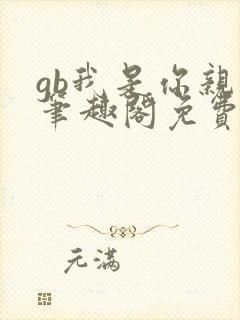 gb我是你親
筆趣閣免費
元滿